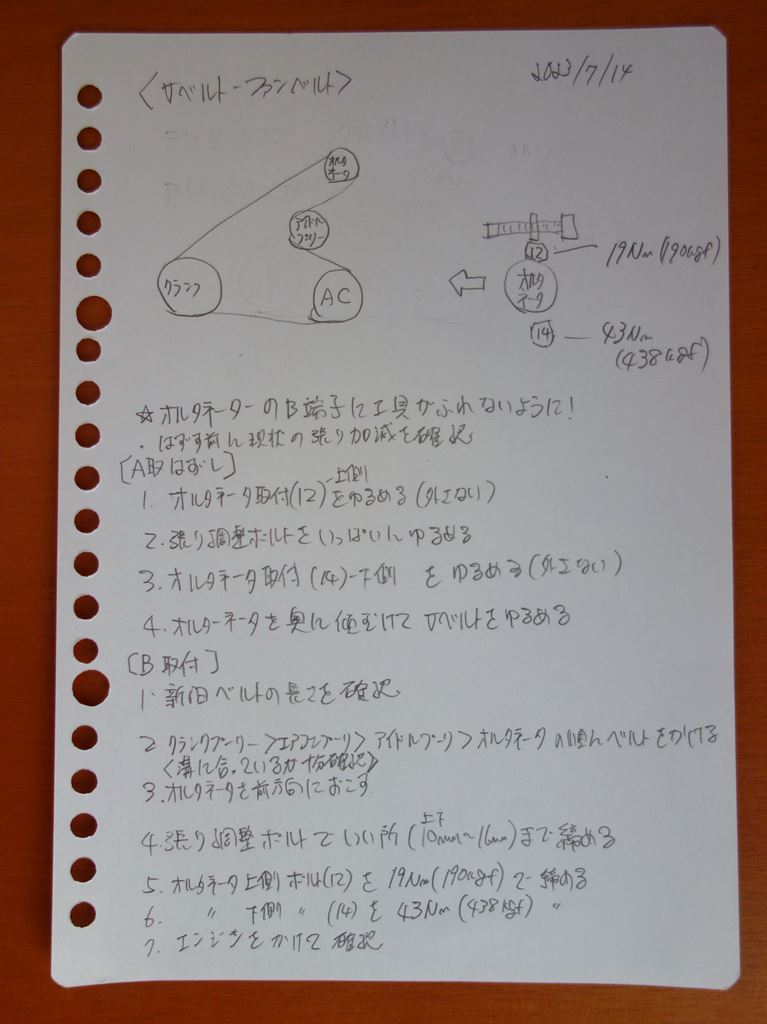 2023/7/14
〈Vベルト-ファンベルト〉
オルタ
ネータ
アイドル
プーリー
クランク
AC
12
19Nm(190kgf)
オルタ
ネータ
14
43Nm
(438kgf)
☆オルタネーターのB端子に工具がふれないように!
・はずす前に現状の張り加減を確認
[A取はずし]
1. オルタネータ取付(12)-上側をゆるめる(外さない)
2. 張り調整ボルトをいっぱいにゆるめる
3. オルタネータ取付(14)-下側 をゆるめる(外さない)
4. オルターネータを奥に傾むけてVベルトをゆるめる
[B取付]
1. 新旧ベルトの長さを確認
2 クランクプーリー>エアコンプーリ>アイドルプーリ>オルタネータの順にベルトをかける
〈溝に合っているか十分確認〉
3. オルタネータを前方向におこす
4. 張り調整ボルトでいい所(上下10mm~16mm)まで締める
5. オルタネータ上側ボルト(12)を19Nm(190kgf)で締める
6. 〃 下側 〃 (14)を43Nm(438kgf) 〃
7. エンジンをかけて確認